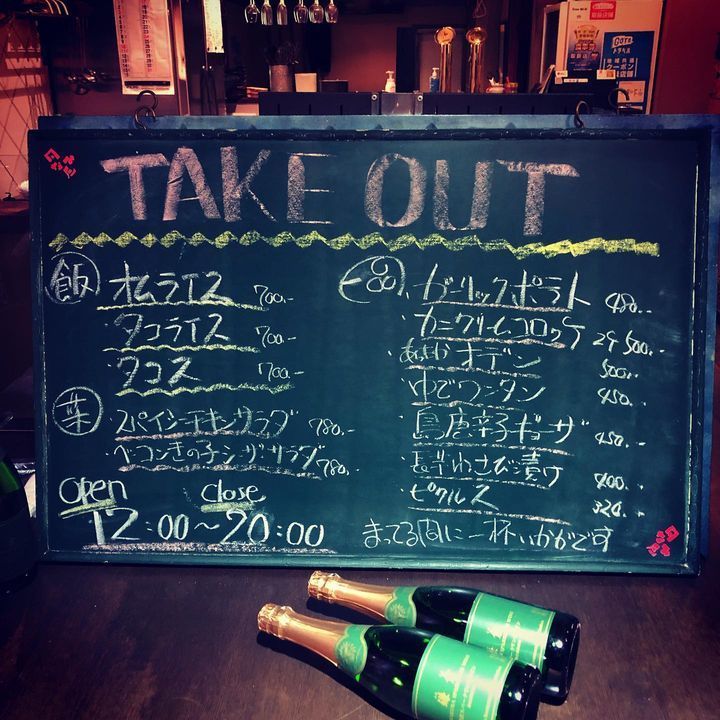 TAKE OUT
飯
オムライス 700.-
タコライス 700.-
タコス 700.-
菜
スペインチキンサラダ 780.-
ベーコンきの子シーザーサラダ 780.-
Open Close
12:00~20:00
一品
・ガーリックポテト 480.-
・カニクリームコロッケ 2ケ 500.-
オデン 500.-
・ゆでワンタン 450.-
・島唐辛子ギョーザ 450.-
わさび漬け 400.-
・ピクルス 320.-
まってる間に一杯いかがです
GoTo
トラベル
クーポン